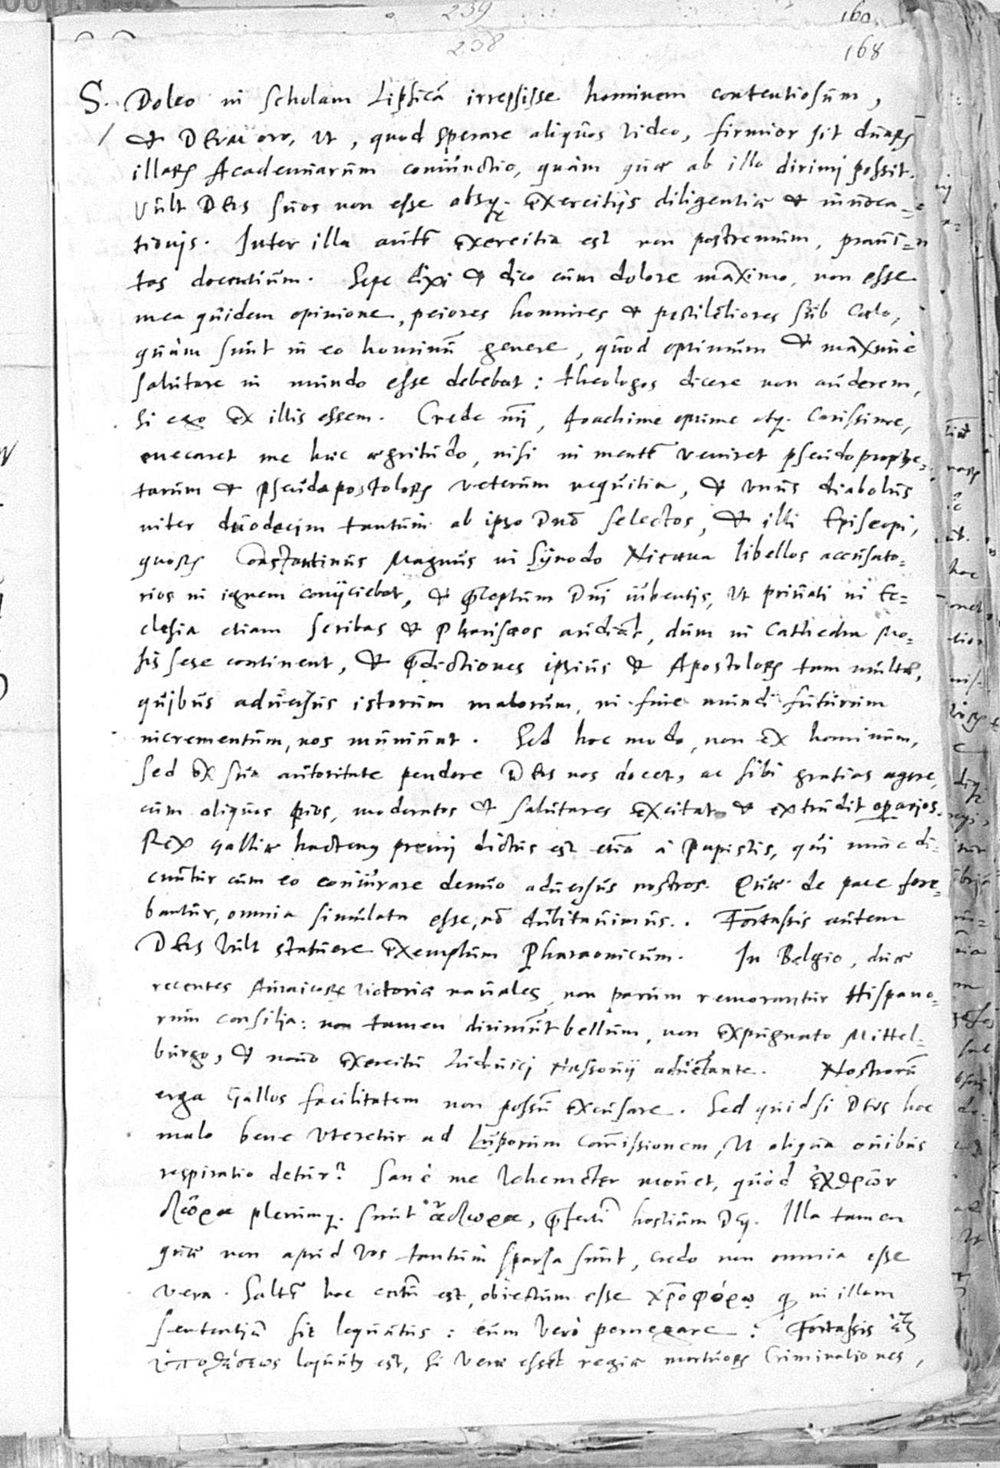 239
160
238
168
S. Doleo in scholam Lipsicā irrepsisse hominem contentiosum,
& DEum oro, ut, quod sperare aliquos video, firmior sit duarꝝ
illarꝝ Academiarum coniunctio, quàm quæ ab illo dirimi possit.
Vult DEus suos non esse absq; exercitijs diligentiæ & inuoca-
tionis. Inter illa autē exercitia est non postremum, prauitas
tas docentium. Sæpe dixi & dico cum dolore maximo, non esse
mea quidem opinione, peiores homines & pestilētiores sub Cœlo,
quàm sunt in eo hominū genere, quod optimum & maximè
salutare in mundo esse debebat: theologos dicere non auderem,
si ego ex illis essem. Crede mī, Ioachime optime atq; carissime,
enecaret me hæc ægritudo, nisi in mentē veniret pseudoprophe-
tarum & pseudapostolorꝝ veterum nequitia, & unus diabolus
inter duodecim tantùm ab ipso Dn̄o selectos, & illi Episcopi,
quorꝝ Constantinus Magnus in Synodo Nicæna libellos accusato-
rios in ignem conijciebat, & p̄ceptum Dn̄i iubentis, ut priuati in Ec-
clesia etiam scribas & Pharisæos audiāt, dum in Cathedra Mo-
sis sese continent, & p̄dictiones ipsius & Apostolorꝝ tam multæ,
quibus aduersus istorum malorum, in fine mundi futurum
incrementum, nos muniunt. Sed hoc modo, non ex hominum,
sed ex sua autoritate pendere DEus nos docet, ac sibi gratias agere,
cùm aliquos pios, moderatos et salutares excitat & extrudit operarios.
Rex Galliæ hactenus premi dictus est etiā à Papistis, qui nunc di-
cuntur cum eo coniurare denuo aduersus nostros. Quæ de pace fere-
bantur, omnia simulata esse, nō dubitauimus. Fortassis autem
DEus vult statuere exemplum Pharaonicum. In Belgio, duæ
recentes Auraicorꝝ victoriæ nauales, non parum remorantur Hispano-
rum consilia: non tamen dirimūt bellum, non expugnato Mittel-
burgo, & nouo exercitu Ludouici Nassouij aduētante. Nostrorū
erga Gallos facilitatem non possū excusare. Sed quid si DEus hoc
malo bene uteretur ad Luporum com̄issionem, ut aliqua ouibus
respiratio detur? Sanè me vehementer mouet, quòd ἐχθρῶν
δῶρα plerumq; sunt ἄδωρα, p̄sertī hostium Dei. Illa tamen
quæ non apud vos tantùm sparsa sunt, credo non omnia esse
vera. Saltē hoc certū est, obiectum esse χρ̄οφόρῳ qđ in illam
sententiā sit loquutus: eum verò pernegare: Fortassis ἐξ
ὑποθέσεως loquutus est, si veræ essēt regiæ mortuorꝝ criminationes,